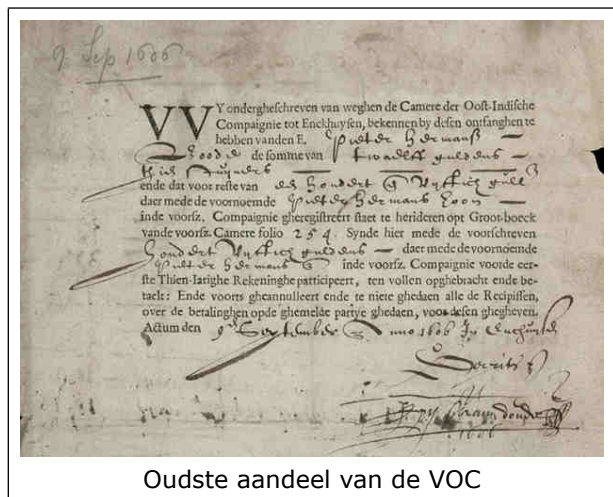 9 Sep 1606
VVY ondergheschreven van weghen de Camere der Oost-Indische
Compaignie tot Enckhuysen, bekennen by desen ontfanghen te
hebben vanden E. Pieter Hermansz
de somme van twaelff guldens
thien stuyvers
ende dat voor reste van hondert Vyftich gull
daer mede de voornoemde Pieter Hermans zoon
inde voorsz. Compaignie gheregistreert staet te herideren opt Groot-boeck
vande voorsz. Camere folio 254. Synde hier mede de voorschreven
hondert Vyftich guldens daer mede de voornoemde
Pieter Hermans inde voorsz. Compaignie voor de eer-
ste Thien-Iarighe Rekeninghe participeert, ten vollen opghebracht ende be-
taelt: Ende voorts gheannulleert ende te niete ghedaen alle de Recipissen,
over de betalinghen opde ghemelde partye ghedaen, voor desen ghegheven.
Actum den 9 September Anno 1606
1606
Oudste aandeel van de VOC